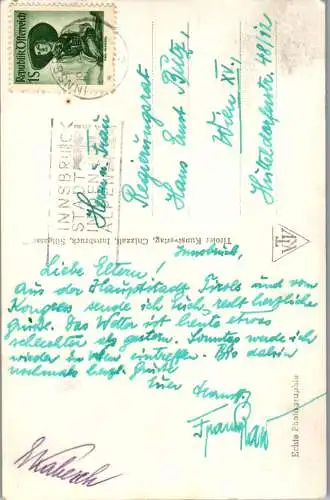 Republik Österreich
1S
INNSBRUCK
STADT
INMITTEN
ALPEN
Herrn u. Frau
Regierungsrat
Hans Ernst
Wien XV.,
Hütteldorferstr. 48/12
Tiroler Kunstverlag, Chizzali, Innsbruck, Sillgasse
Innsbruck,
Liebe Eltern!
Aus der Hauptstadt Tirols und vom
Kongress sende ich Euch recht herzliche
Grüße. Das Wetter ist heute etwas
schlechter als gestern. Sonntag werde ich
wieder in Wien eintreffen. Bis dahin
nochmals herzl. Grüße
Euer
Echte Photographie